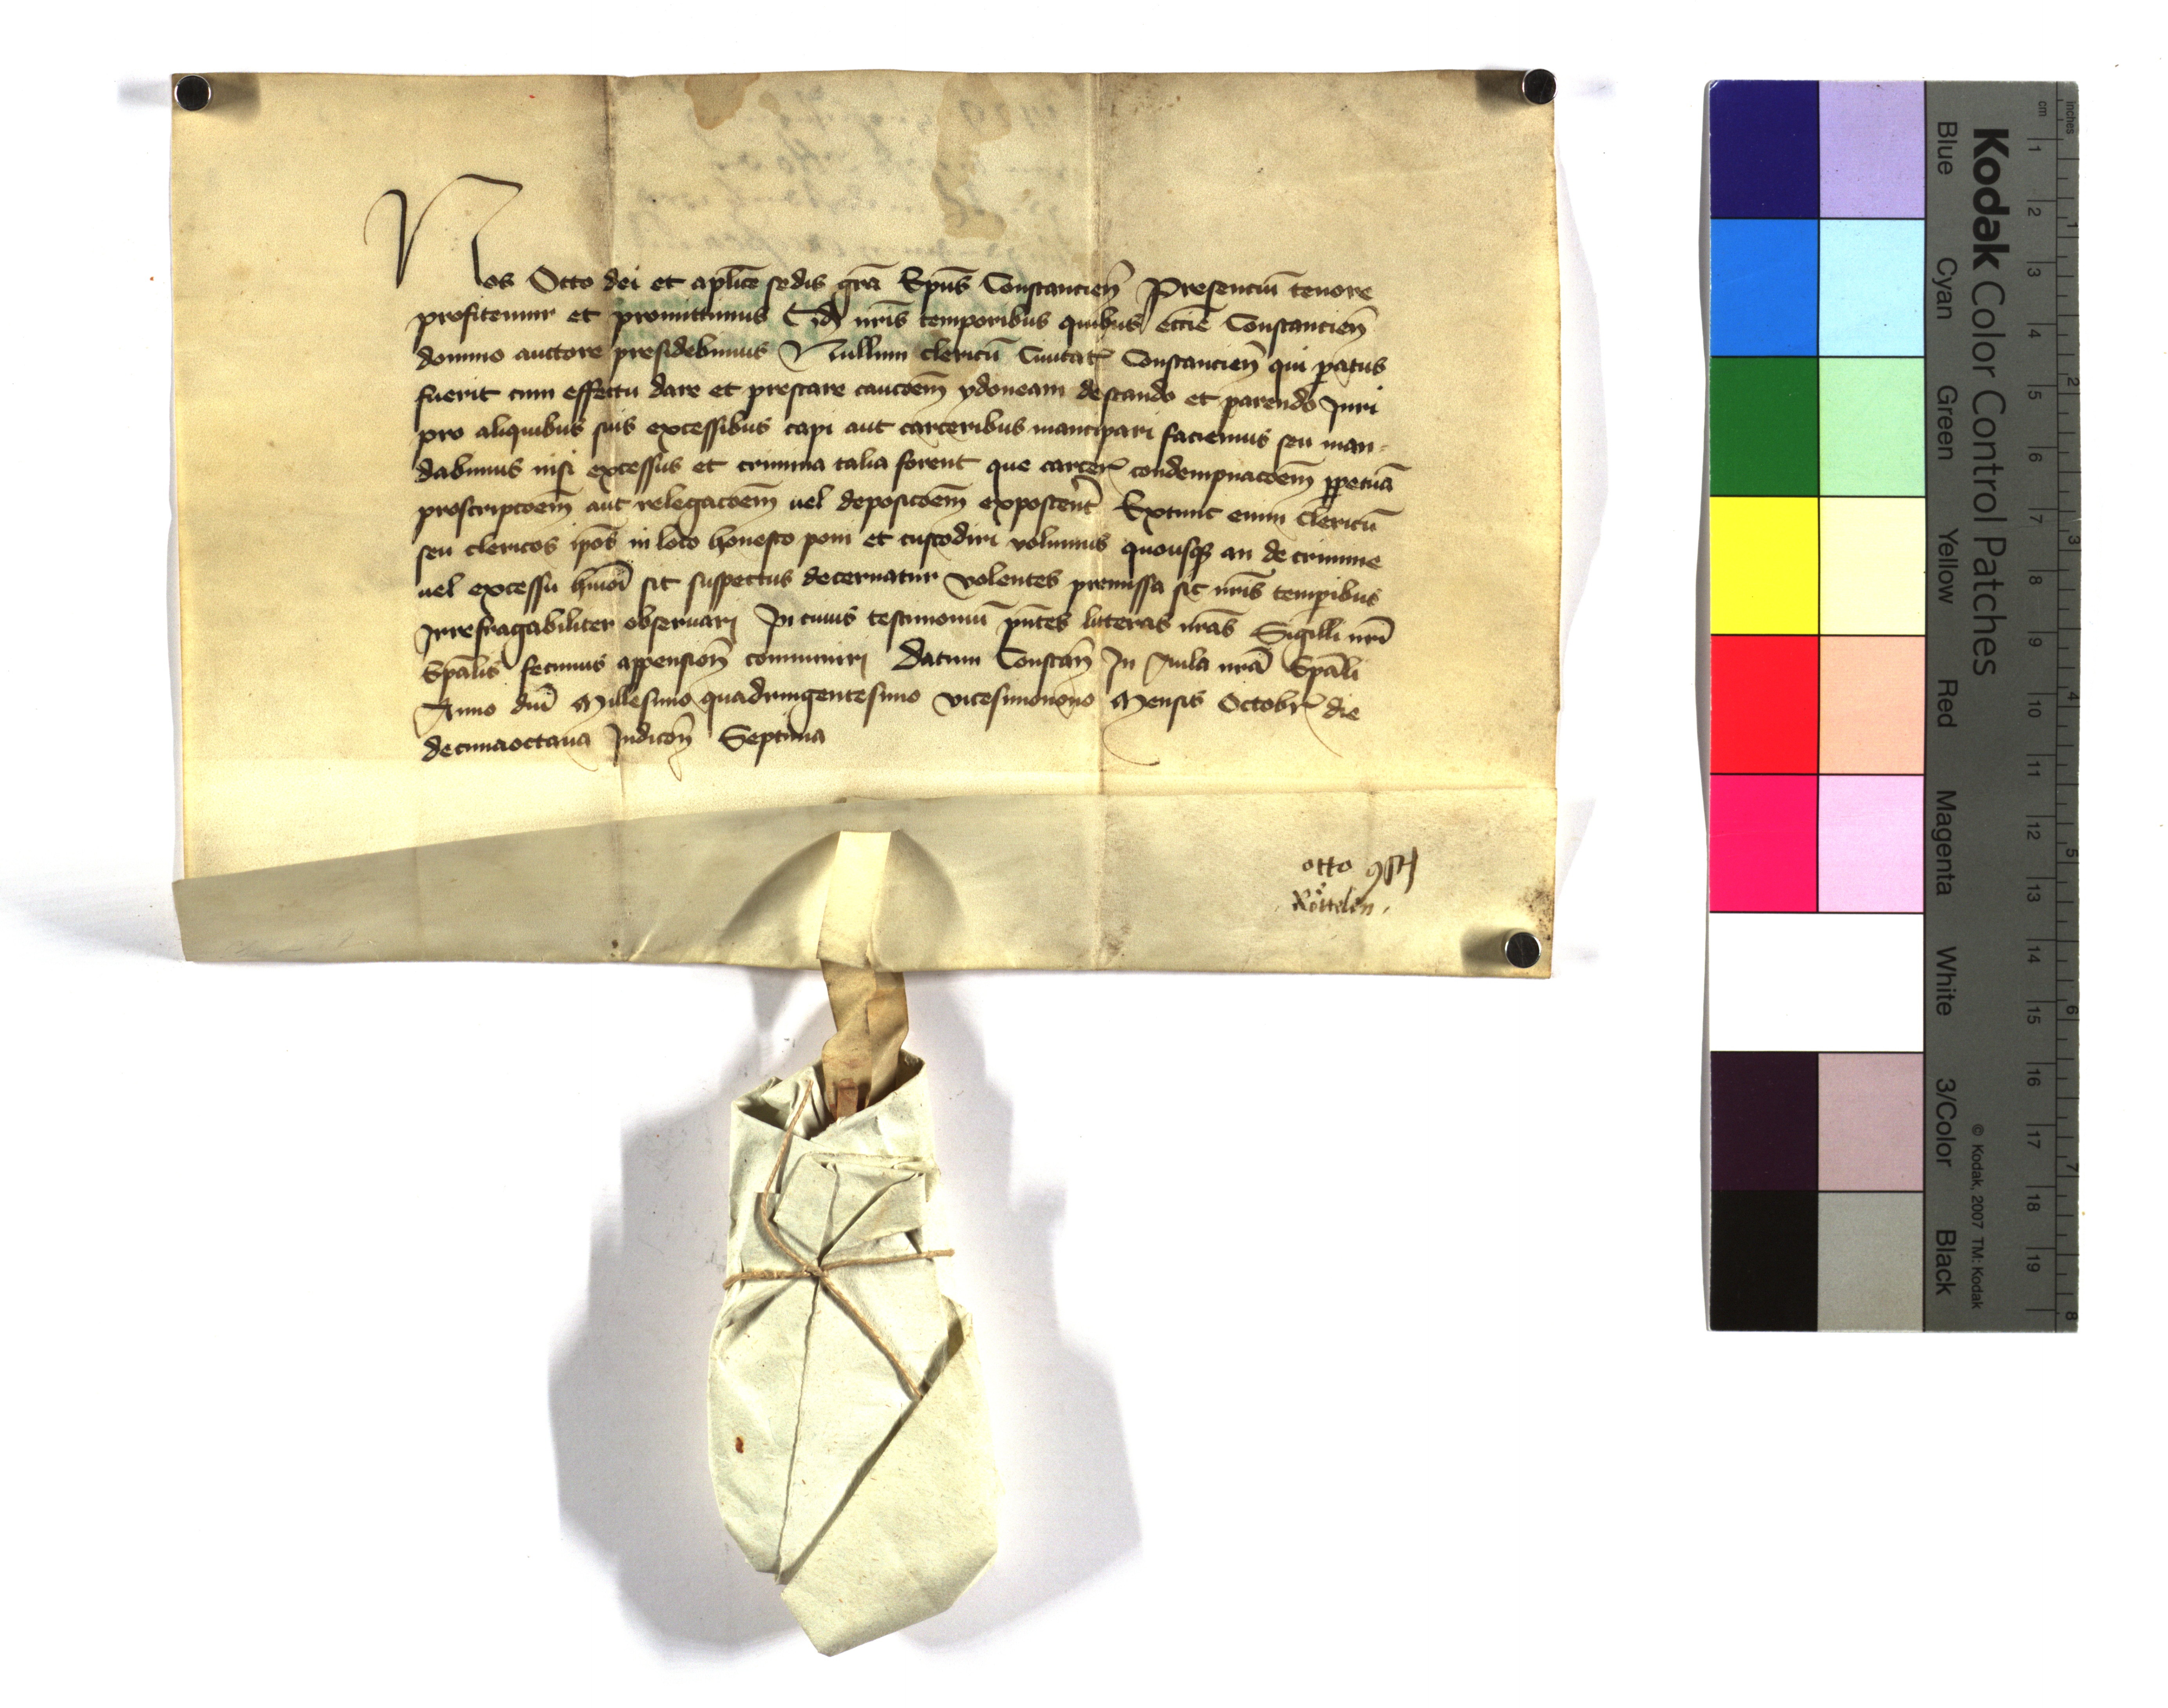 Nos Otto dei et aplice sedis gra Epus Constancien Presenciu tenore
profitemur et promittimus Qd nris temporibus quibus eccie Constancien
domino auctore presidebimus Nullum clericu Ciuitat Constancien qui patus
fuerit cum effectu dare et prestare caucoem ydoneam de stando et parendo Juri
pro aliquibus suis excessibus capi aut carceribus mancipari faciemus seu man-
dabimus nisi excessus et crimina talia forent que carcer condempnacoem ppetua
proscripcoem aut relegacoem uel deposicoem exposcent Extunc enim Clericu
seu clericos ipos in loco honesto poni et custodiri volumus quousq an de crimine
uel excessu hmoi sit suspectus decernatur volentes premissa sic nris tempibus
Irrefragabiliter obseruari In cuius testimoniu pntes litteras nras Sigilli nri
Epalis fecimus appension communiri Datum Constan In Aula nra Epali
Anno dni Millesimo quadringentesimo vicesimonono Mensis Octobr die
decimaoctaua Indicon Septima
otto
Röttelen.
Kodak Color Control Patches
Blue Cyan Green Yellow Red Magenta White 3/Color Black
© Kodak, 2007 TM: Kodak
cm 1 2 3 4 5 6 7 8 9 10 11 12 13 14 15 16 17 18 19
inches 1 2 3 4 5 6 7 8